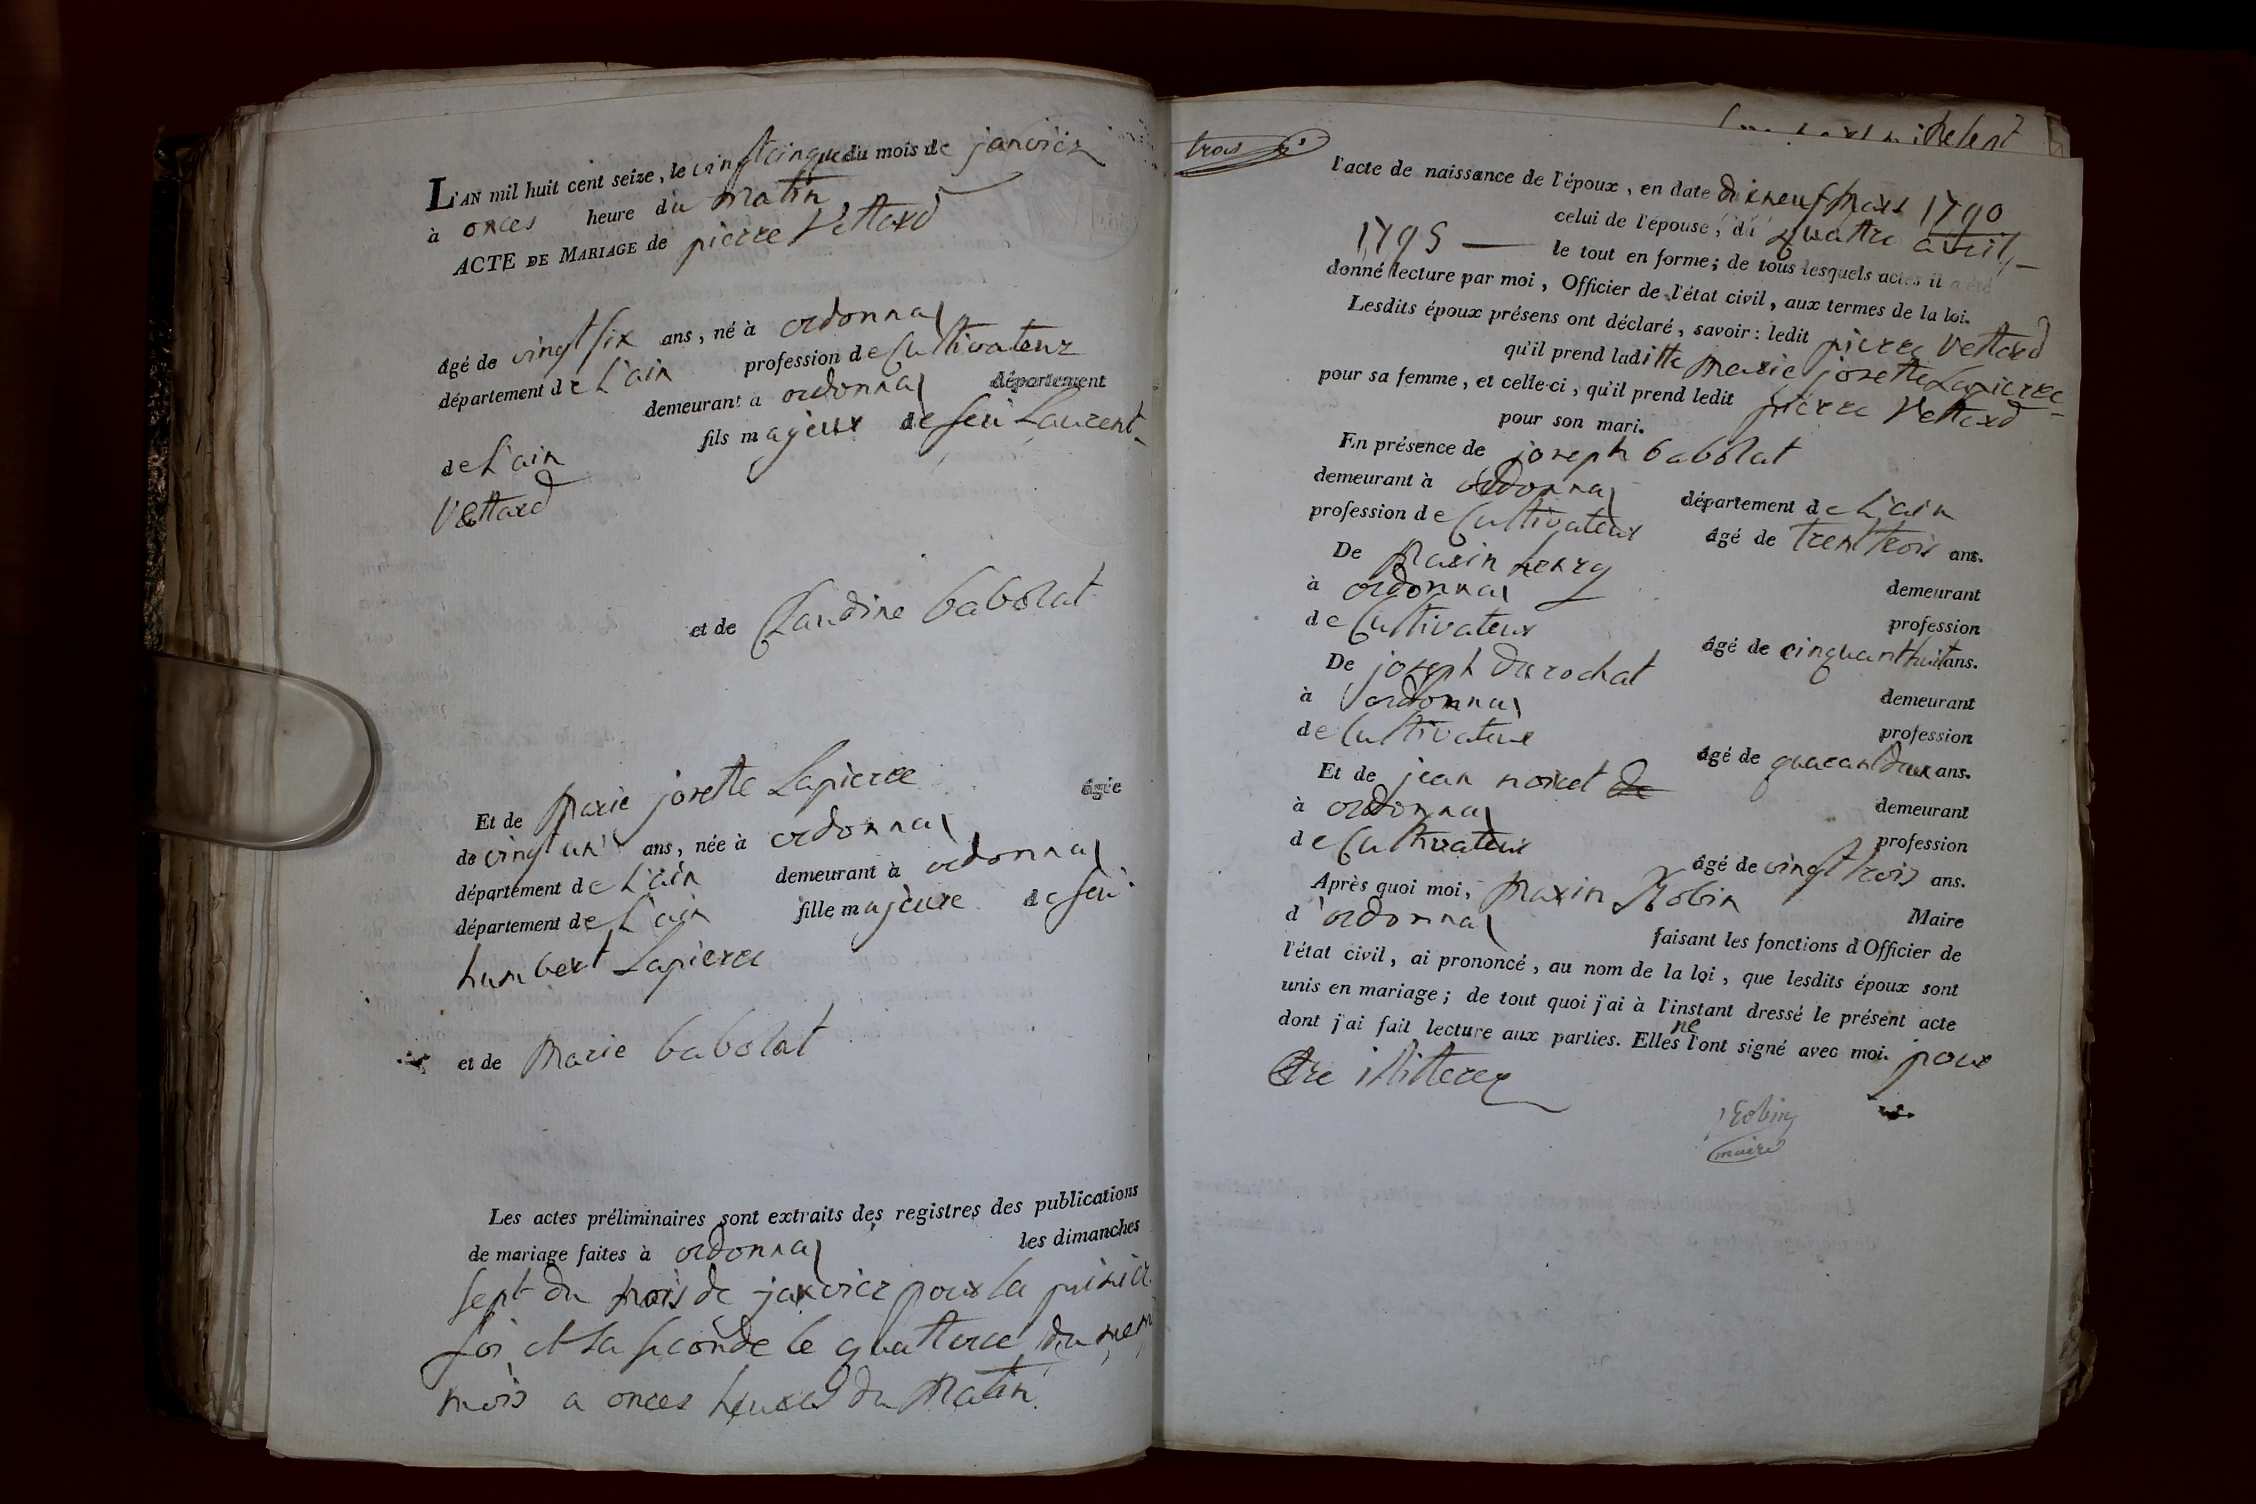 L'AN mil huit cent seize, le vingtcinque du mois de janvier
à onces heure du matin
ACTE DE MARIAGE de pierre Vettard
âgé de vingt six ans, né à ordonnas
département de L'ain profession de Cultivateur
demeurant a ordonnas département
de L'ain fils majeur de feu Laurent
Vettard
et de Claudine babolat
Et de Marie josette Lapierre âgée
de vingt un ans, née à ordonnas
département de L'ain demeurant à ordonnas
département de L'ain fille majeure de feu
humbert Lapierre
et de Marie babolat
Les actes préliminaires sont extraits des registres des publications
de mariage faites à ordonnas les dimanches
sept du mois de janvier pour la
foi et la seconde le quattorce du mem
mois a onces heures du Matin
trois
l'acte de naissance de l'époux, en date dixneuf Mars 1790
celui de l'épouse, du quattre avril
1795 — le tout en forme; de tous lesquels actes il a été
donné lecture par moi, Officier de l'état civil, aux termes de la loi.
Lesdits époux présens ont déclaré, savoir: ledit pierre Vettard
qu'il prend laditte Marie josette Lapierre
pour sa femme, et celle-ci, qu'il prend ledit pierre Vettard
pour son mari.
En présence de joseph babolat
demeurant à ordonnas département de L'ain
profession de Cultivateur âgé de trent trois ans.
De Marin henry demeurant
à ordonnas profession
de Cultivateur âgé de cinquant huit ans.
De joseph durochat demeurant
à ordonnas profession
de Cultivateur âgé de quarant deux ans.
Et de jean de demeurant
à ordonnas profession
de Cultivateur âgé de vingt trois ans.
Après quoi moi, Marin Robin Maire
d'ordonnas faisant les fonctions d'Officier de
l'état civil, ai prononcé, au nom de la loi, que lesdits époux sont
unis en mariage; de tout quoi j'ai à l'instant dressé le présent acte
dont j'ai fait lecture aux parties. Elles ne l'ont signé avec moi. pour
être illitterez
Robin
maire